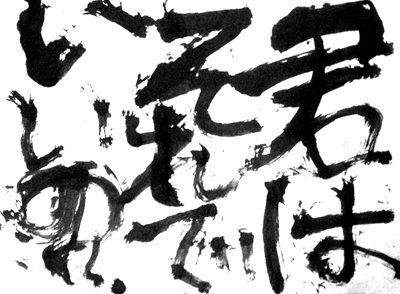 君は
それで
いいの